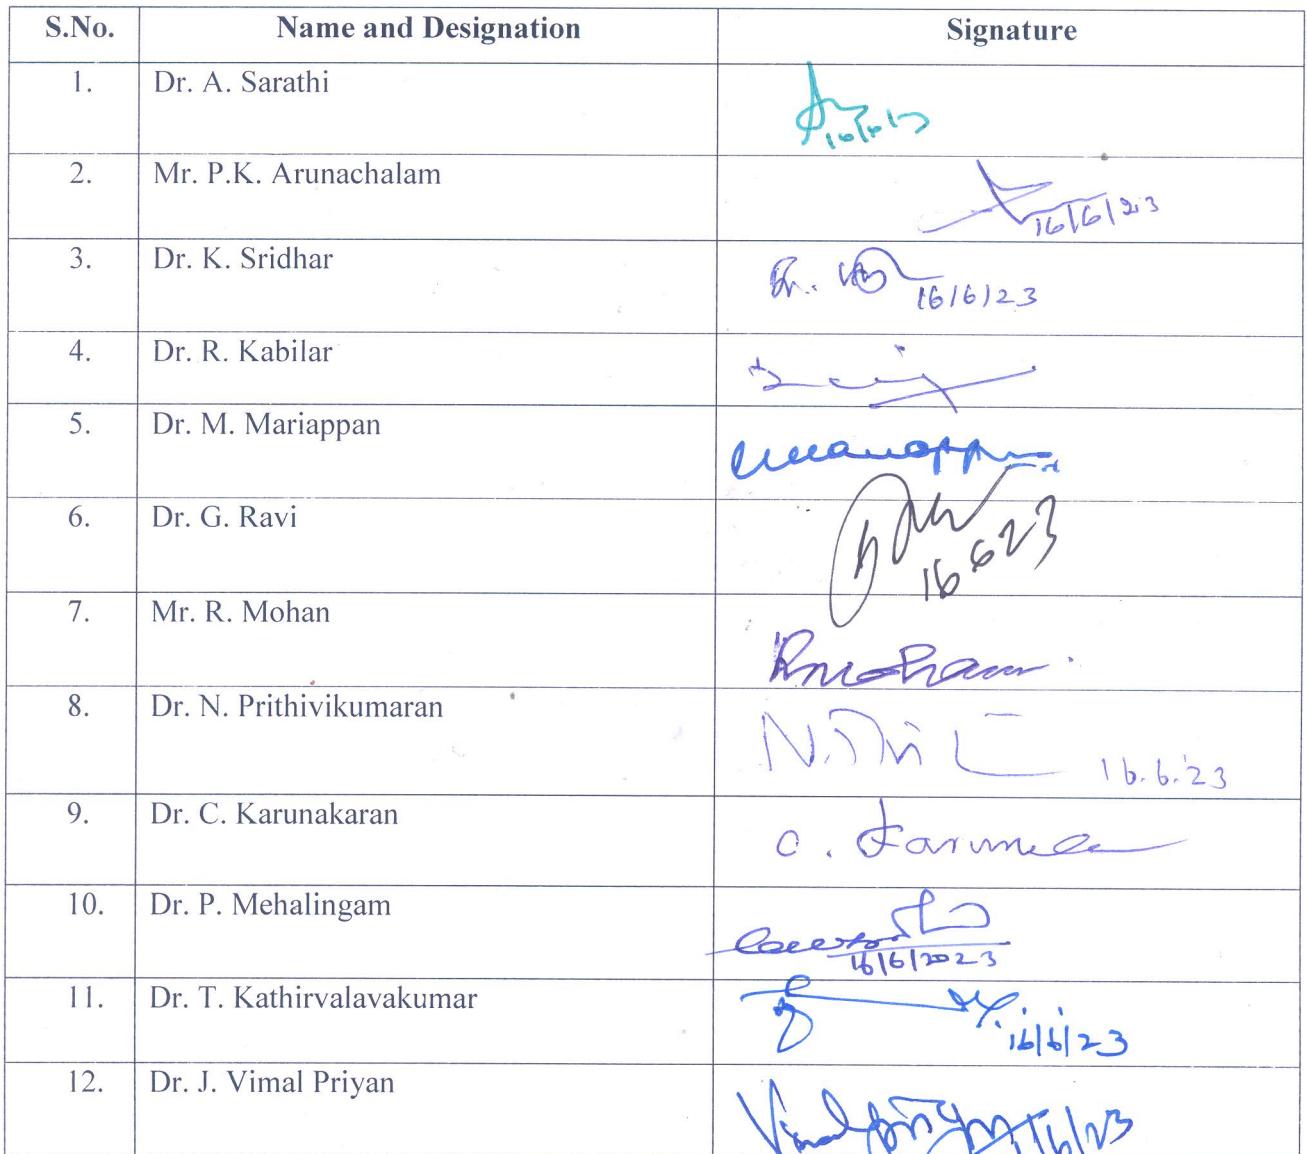 S.No. Name and Designation Signature
1. Dr. A. Sarathi
2. Mr. P.K. Arunachalam
16/6/23
3. Dr. K. Sridhar
16/6/23
4. Dr. R. Kabilar
5. Dr. M. Mariappan
6. Dr. G. Ravi
16 6 23
7. Mr. R. Mohan
Rmohan
8. Dr. N. Prithivikumaran
16.6.23
9. Dr. C. Karunakaran
10. Dr. P. Mehalingam
16/6/2023
11. Dr. T. Kathirvalavakumar
16/6/23
12. Dr. J. Vimal Priyan